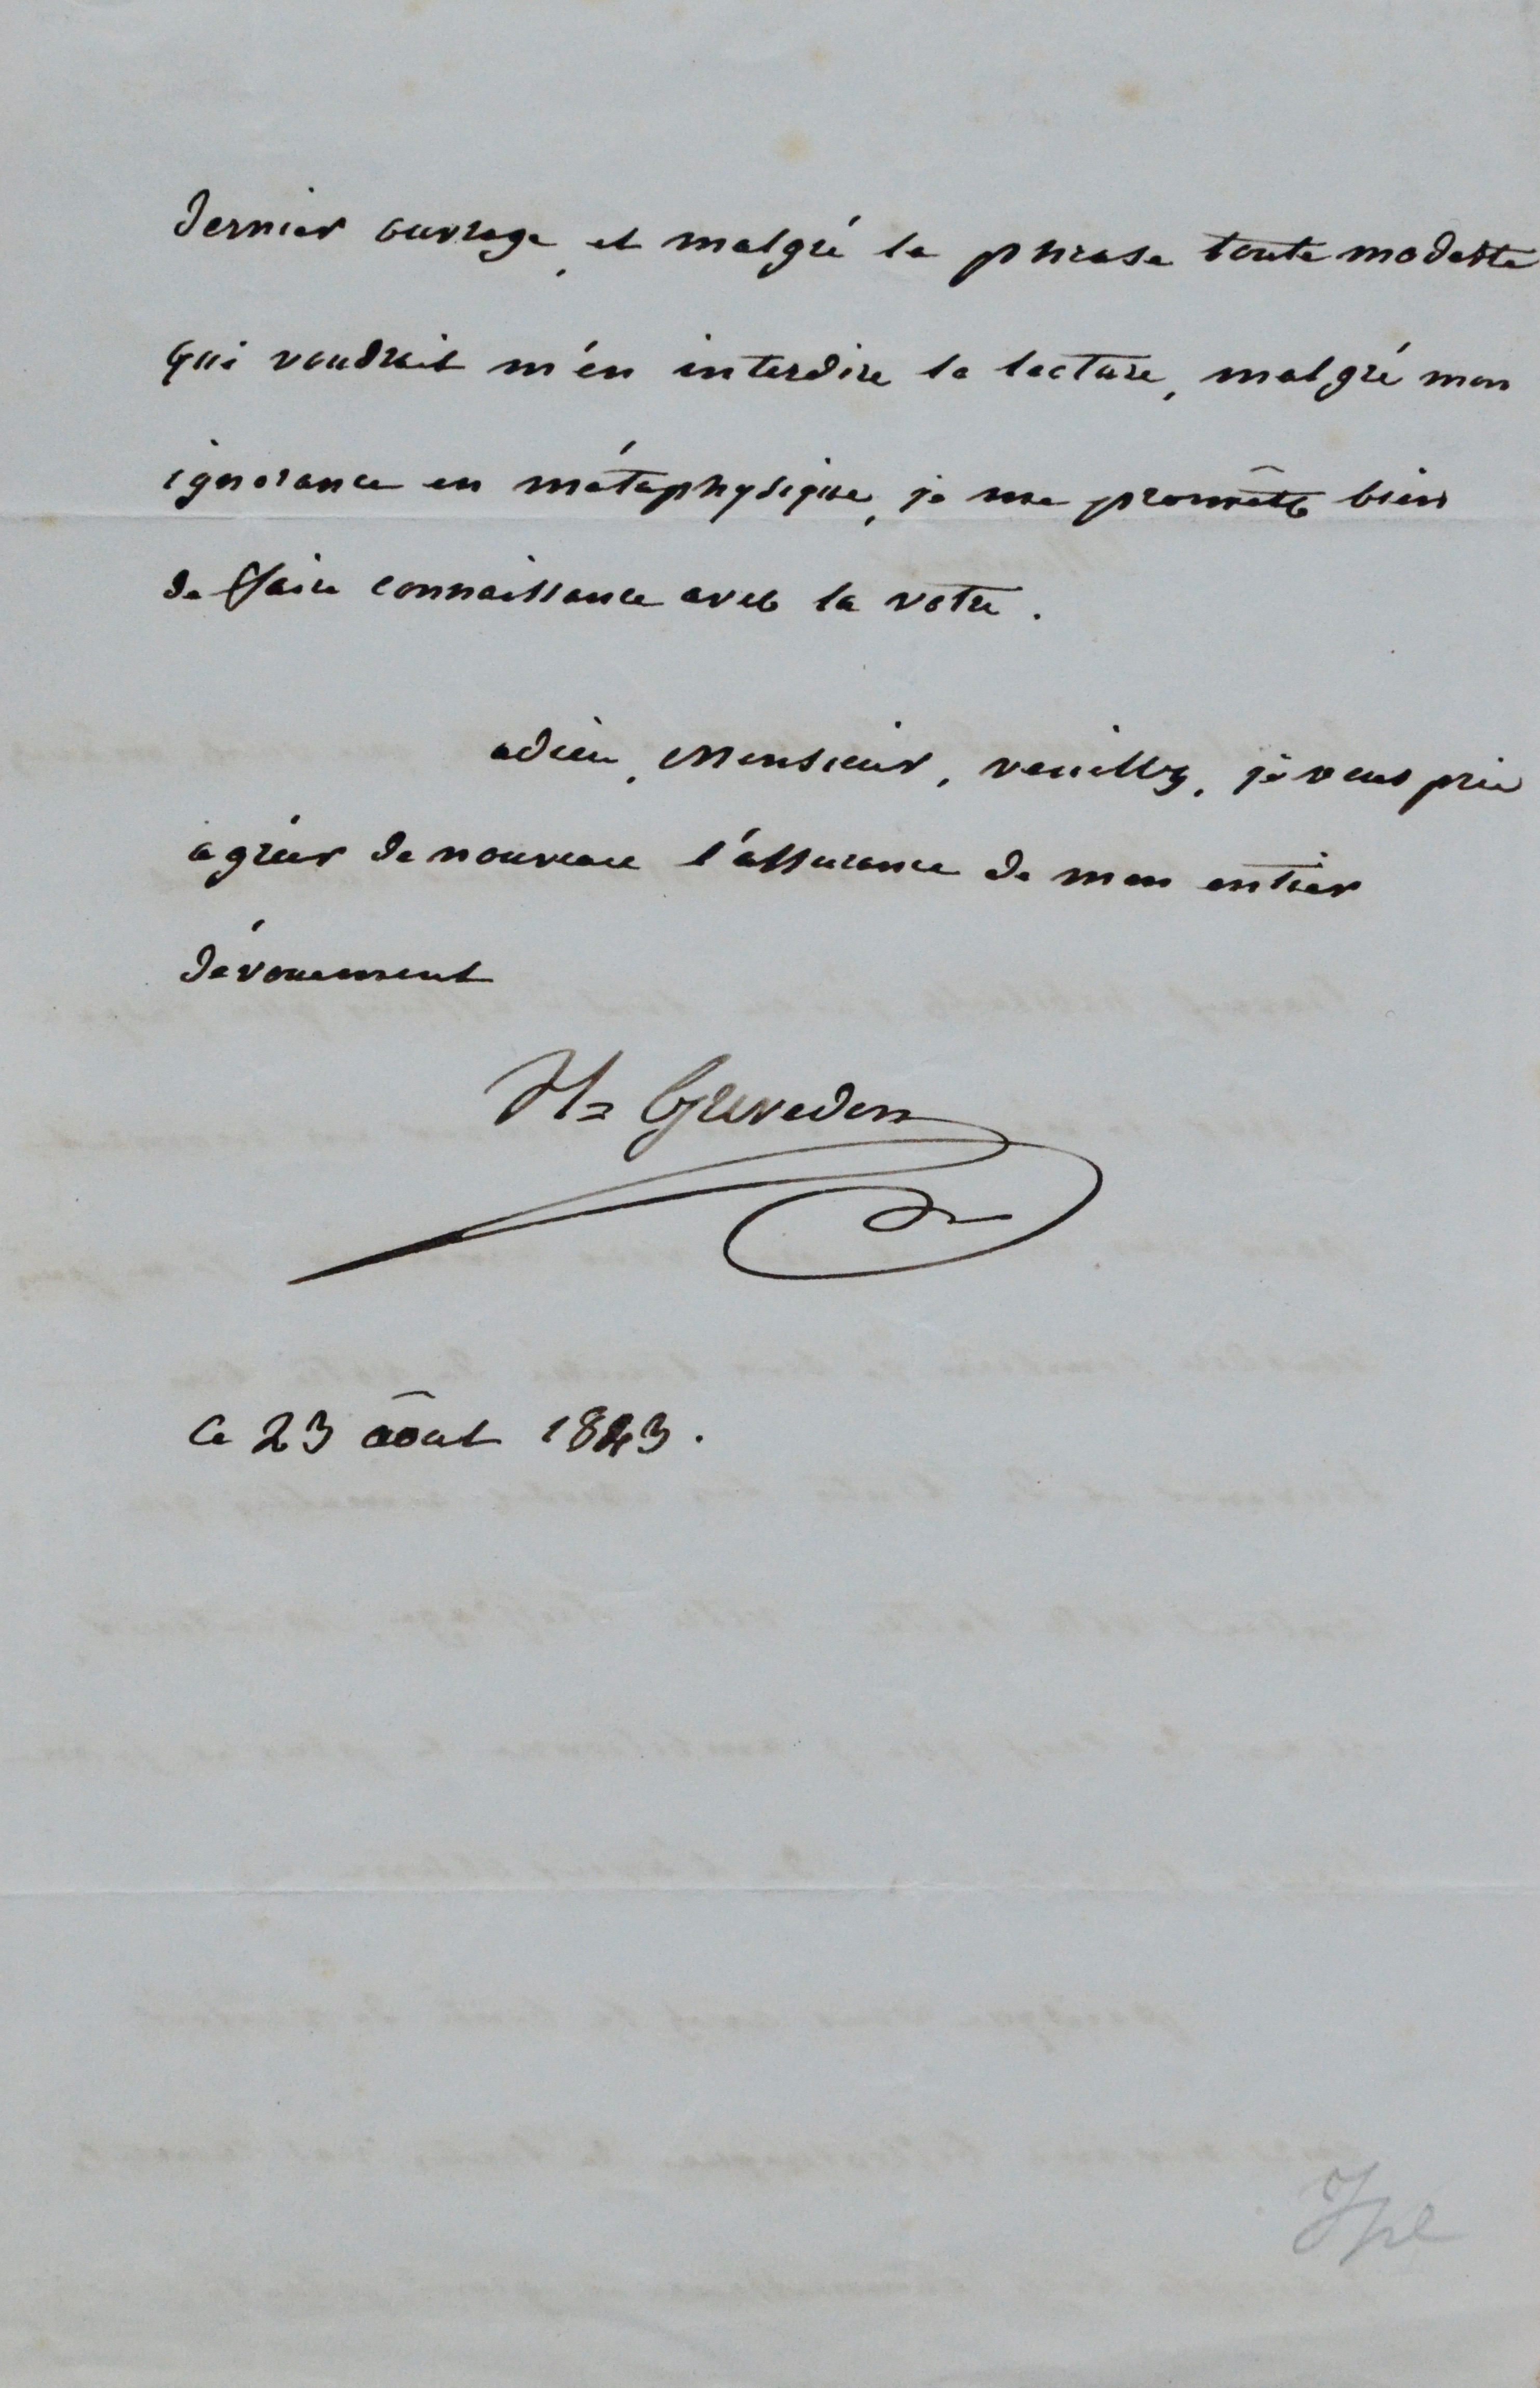 dernier ouvrage, et malgré la phrase toute modeste
qui voudrait m'en interdire la lecture, malgré mon
ignorance en métaphysique, je me promèts bien
de faire connaissance avec la votre.
adieu, Monsieur, veuillez, je vous prie
agréer de nouveau l'assurance de mon entier
dévouement
H= Grevedon
Ce 23 août 1843.